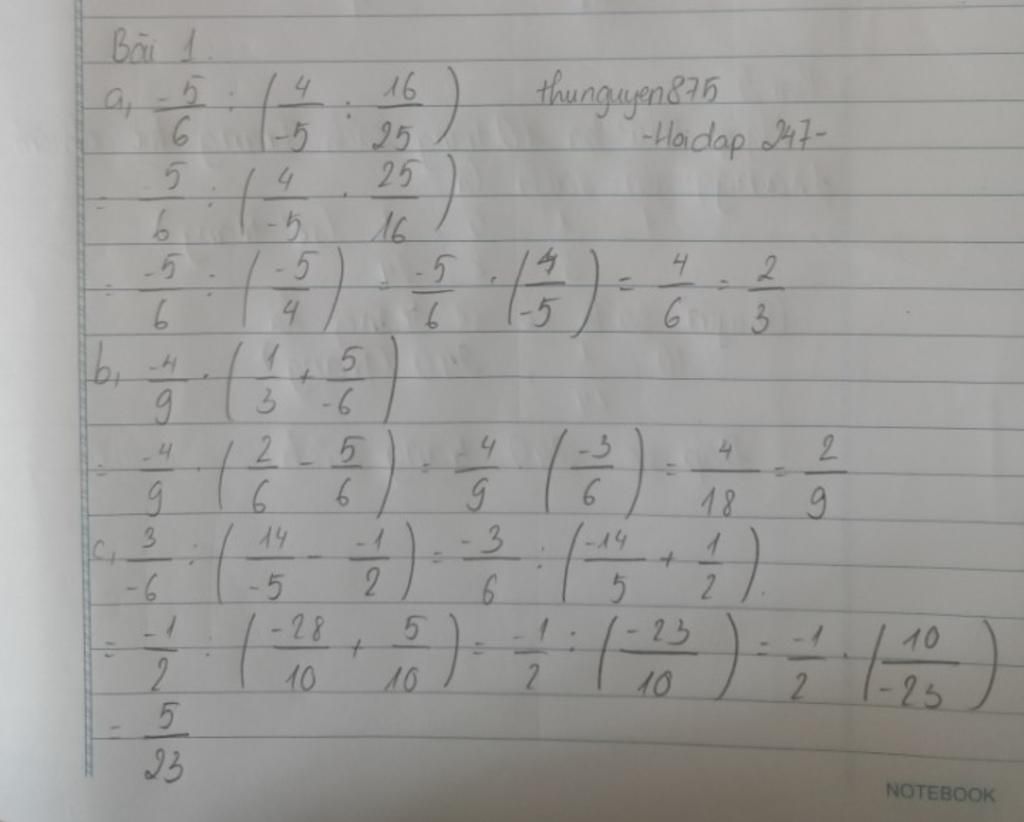 Bài 1.
a, -5/6 : (4/-5 : 16/25) thunguyen875
-Hoidap 247-
= -5/6 : (4/-5 . 25/16)
= -5/6 : (-5/4) = -5/6 . (4/-5) = 4/6 = 2/3
b, -4/9 . (1/3 + 5/-6)
= -4/9 . (2/6 - 5/6) = -4/9 . (-3/6) = 4/18 = 2/9
c, 3/-6 : (14/-5 - -1/2) = -3/6 : (-14/5 + 1/2).
= -1/2 : (-28/10 + 5/10) = -1/2 : (-23/10) = -1/2 . (10/-23)
= 5/23
NOTEBOOK